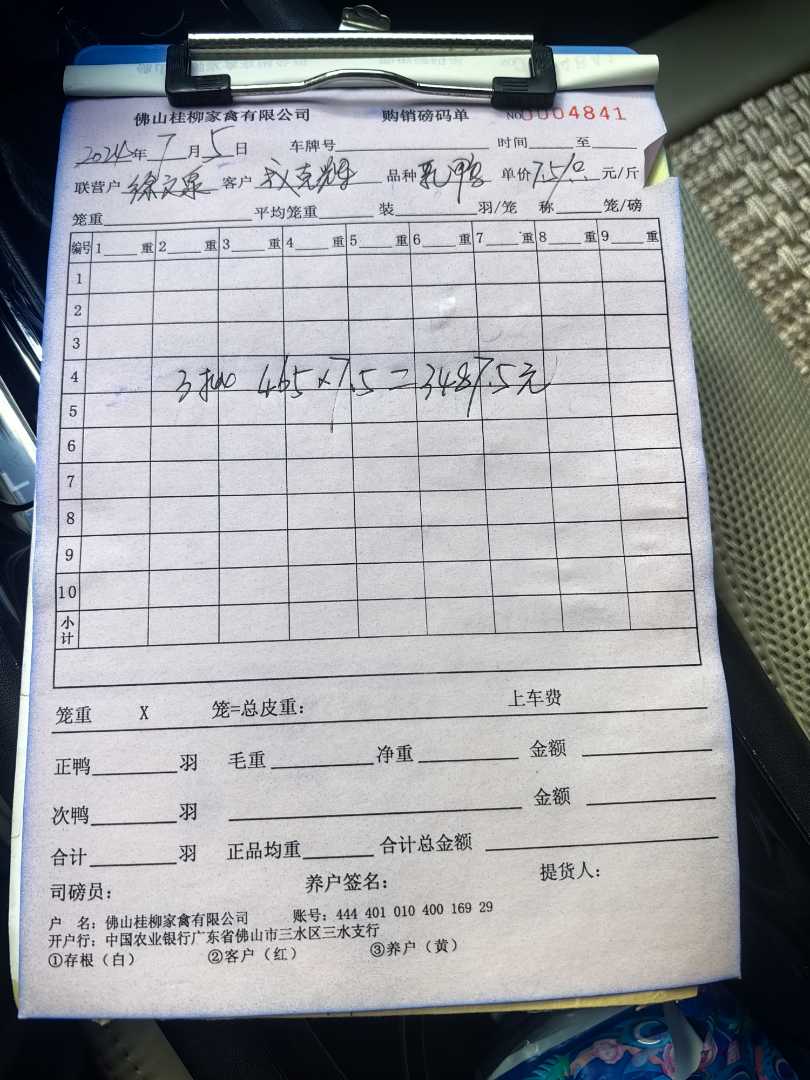 佛山桂柳家禽有限公司 购销磅码单 NO 0004841
2024年 7 月 5 日 车牌号 时间 至
联营户 徐文泉 客户 克辉 品种 乳鸭 单价 7.5/只 元/斤
笼重 平均笼重 装 羽/笼 称 笼/磅
编号 1 重 2 重 3 重 4 重 5 重 6 重 7 重 8 重 9 重
1
2
3
4
3 465×7.5=3487.5元
5
6
7
8
9
10
小计
笼重 X 笼=总皮重: 上车费
正鸭 羽 毛重 净重 金额
次鸭 羽 金额
合计 羽 正品均重 合计总金额
司磅员: 养户签名: 提货人:
户 名: 佛山桂柳家禽有限公司 账号: 444 401 010 400 169 29
开户行: 中国农业银行广东省佛山市三水区三水支行
①存根(白) ②客户(红) ③养户(黄)